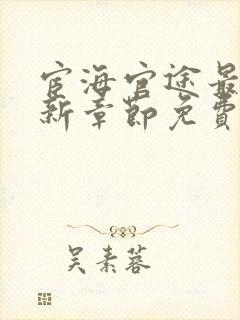 宦海官途最
新章节免费
吴素蓉